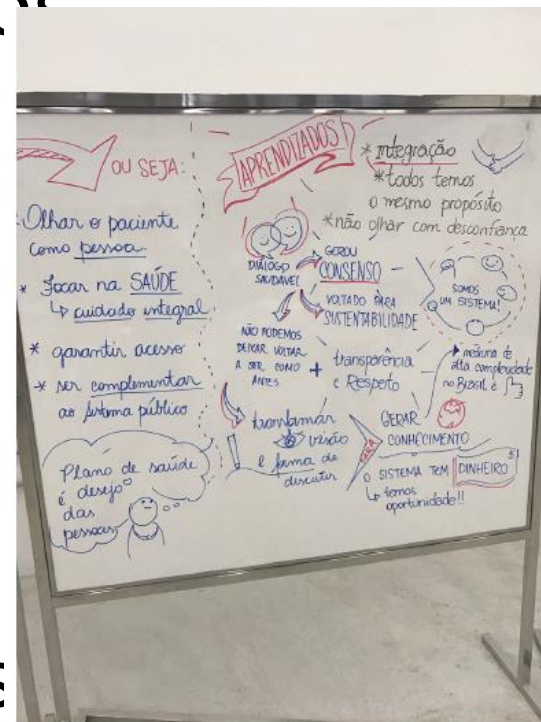 OU SEJA:
* Olhar o paciente
como pessoa.
* Focar na SAÚDE
↳ cuidado integral
* garantir acesso
* ser complementar
ao sistema público
Plano de saúde
é desejo
das
pessoas
APRENDIZADOS
* integração
* todos temos
o mesmo propósito
* não olhar com desconfiança
DIÁLOGO
SAUDÁVEL
GEROU
CONSENSO
VOLTADO PARA
SUSTENTABILIDADE
SOMOS
UM SISTEMA!
NÃO PODEMOS
DEIXAR VOLTAR
A SER COMO
ANTES
+
transparência
e Respeito
medicina de
alta complexidade
no Brasil é
transformar
visão
e forma de
discutir
PARA
GERAR
CONHECIMENTO
O SISTEMA TEM DINHEIRO $
↳ temos
oportunidade!!